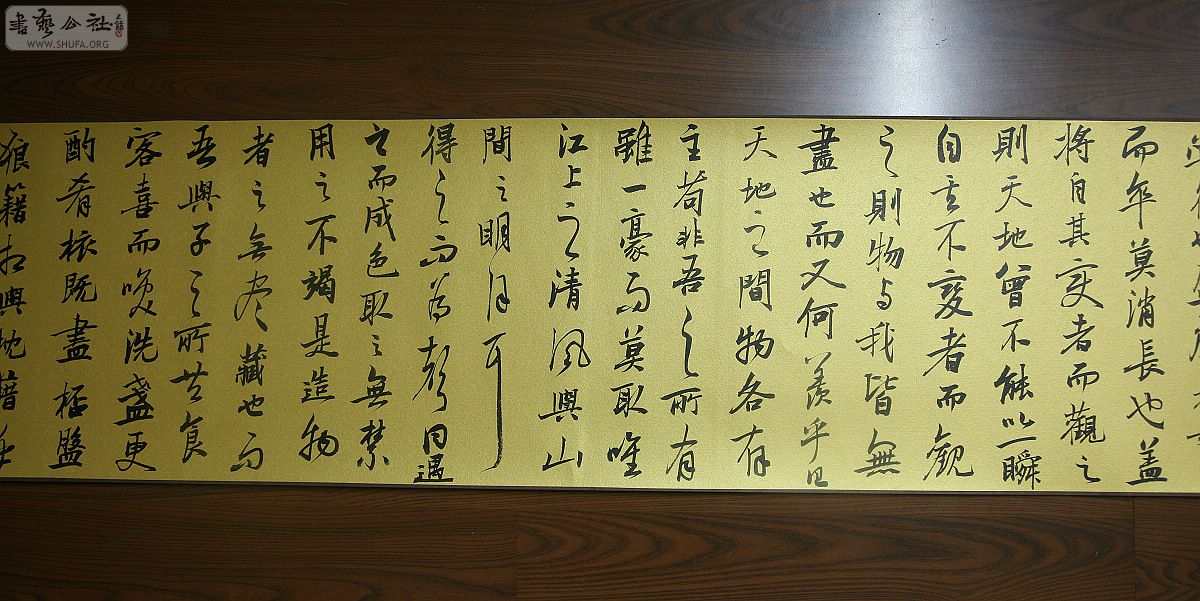 書藝公社
WWW.SHUFA.ORG
而卒莫消長也盖
將自其变者而觀之
則天地曾不能以一瞬
自其不變者而觀
之則物与我皆無
盡也而又何羨乎且
天地之間物各有
主苟非吾之所有
雖一豪而莫取唯
江上之清風與山
間之明月耳
得之而為聲目遇
之而成色取之無禁
用之不竭是造物
者之无尽藏也而
吾與子之所共食
客喜而笑洗盞更
酌肴核既盡杯盤
狼籍相與枕藉乎